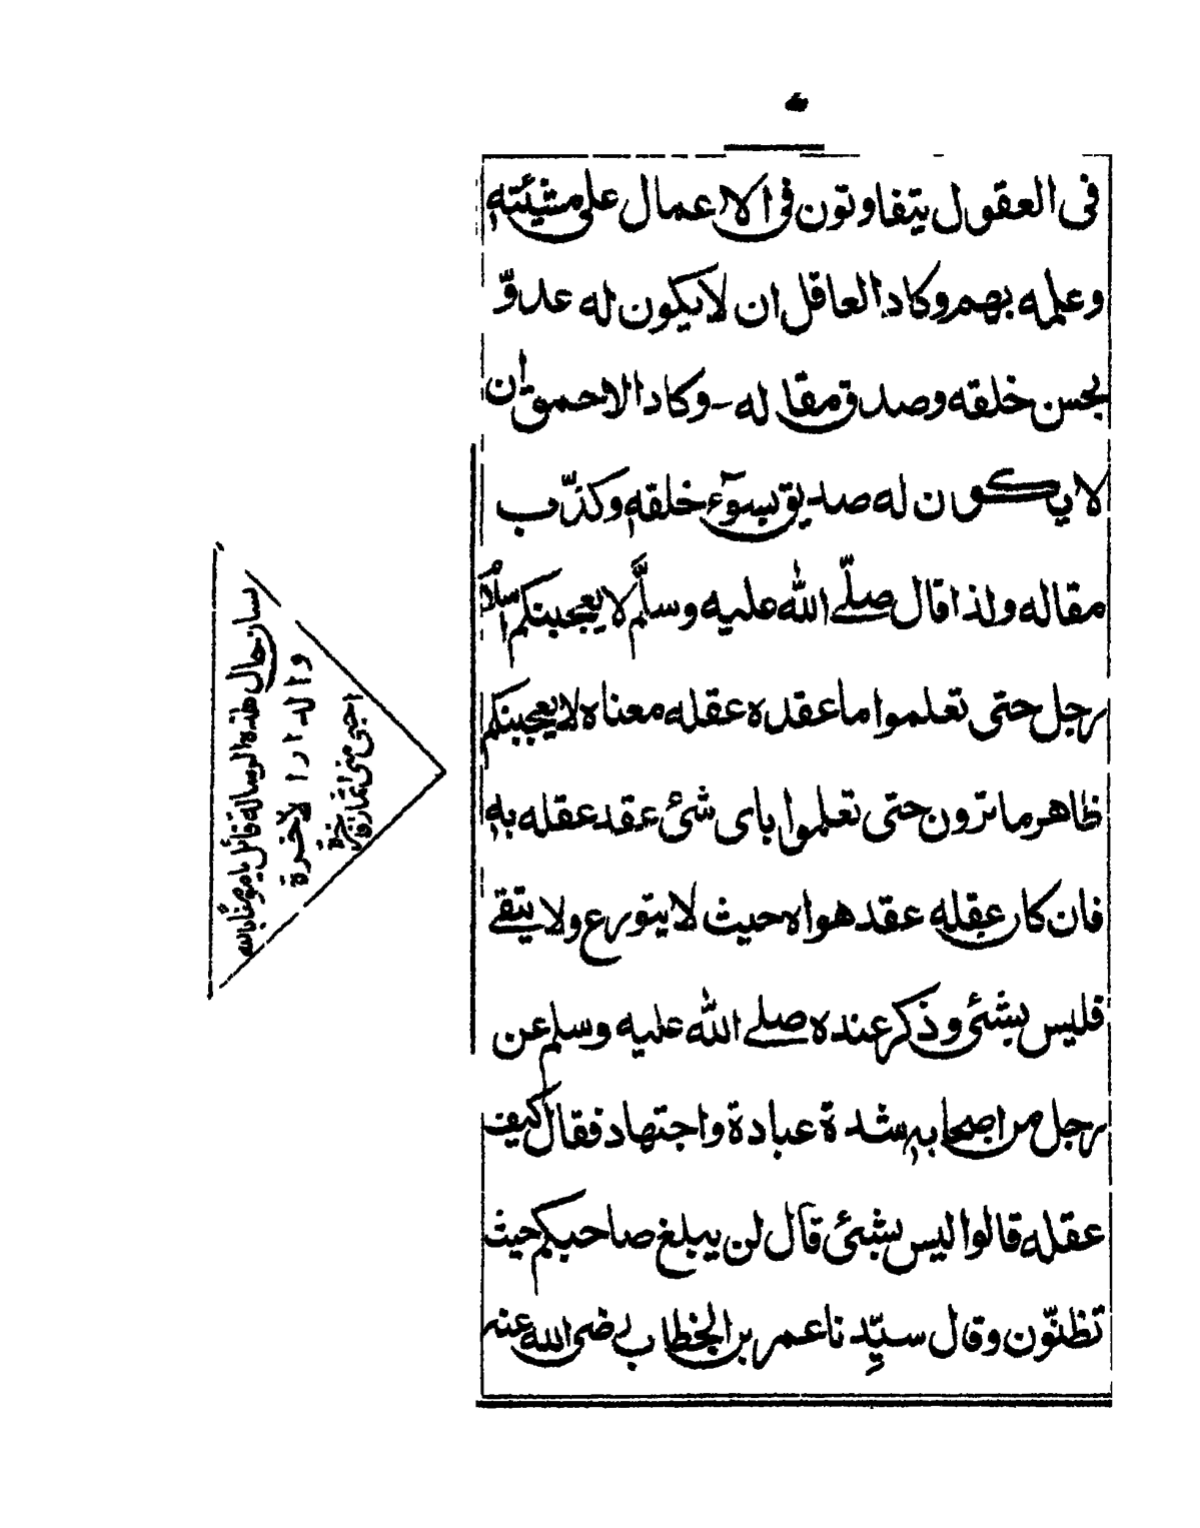 فى العقول يتفاوتون فى الاعمال على مشيّئته
وعلمه بهم وكاد العاقل ان لا يكون له عدوّ
بحسن خلقه وصدق مقاله - وكاد الاحمق ان
لا يكون له صديق بسوٓء خلقه وكذّب
مقاله ولذا قال صلّے الله عليه وسلّم لا يعجبنكم اسلام
رجل حتى تعلموا ما عقده عقله معناه لا يعجبنكم
ظاهر ما ترون حتى تعلموا باى شئ عقد عقله به
فان كان عقله عقد هواه حيث لا يتورع ولا يتقے
فليس بشئ وذكر عنده صلے الله عليه وسلم عن
رجل من اصحابه شدة عبادة واجتهاد فقال كيف
عقله قالوا ليس بشئ قال لن يبلغ صاحبكم حيث
تظنّون وقال سيّدنا عمر بن الخطاب رضى الله عنه
حال هذه الرسالة قائل يا مومنا بالله
والدار الاخرة